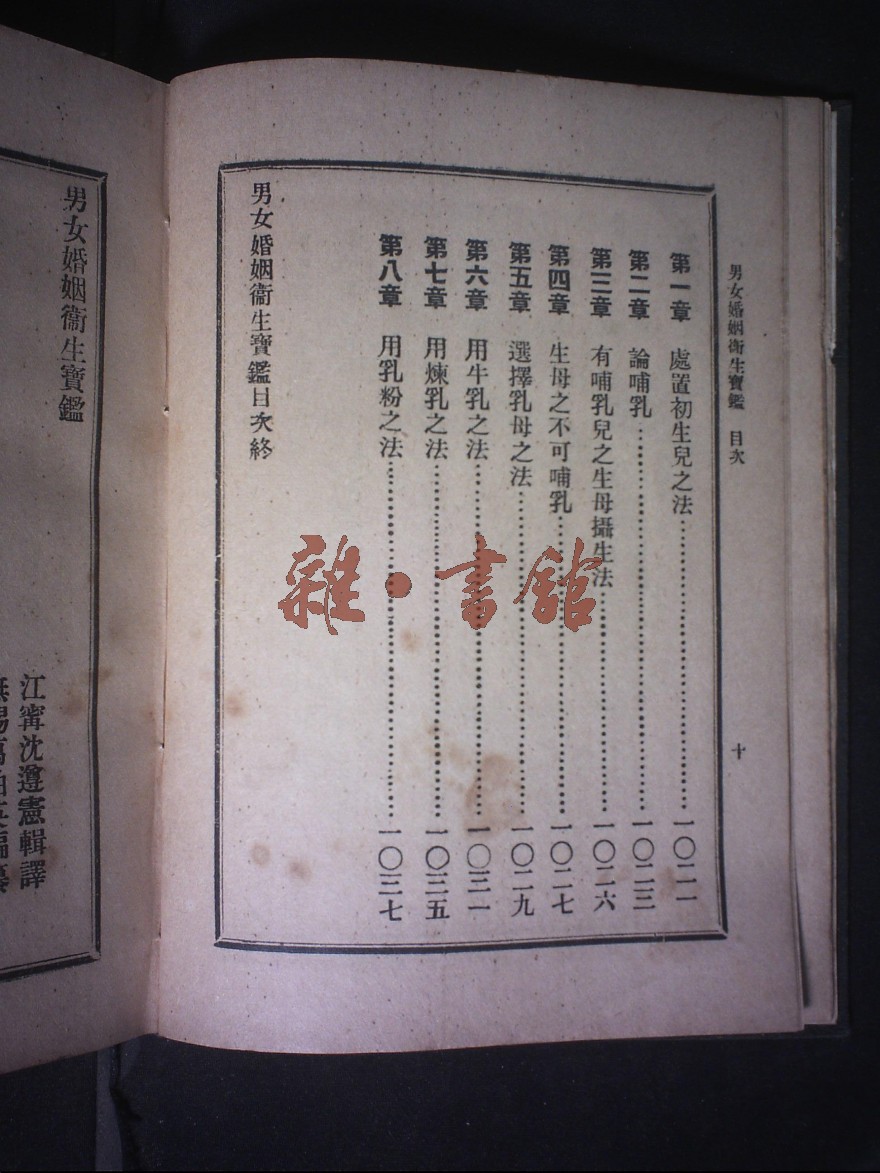 男女婚姻衞生寶鑑 目次
十
第一章 處置初生兒之法……一〇二一
第二章 論哺乳……一〇二三
第三章 有哺乳兒之生母攝生法……一〇二六
第四章 生母之不可哺乳……一〇二七
第五章 選擇乳母之法……一〇二九
第六章 用牛乳之法……一〇三一
第七章 用煉乳之法……一〇三五
第八章 用乳粉之法……一〇三七
男女婚姻衞生寶鑑目次終
雜·書館
男女婚姻衞生寶鑑
江寗沈遵憲輯譯